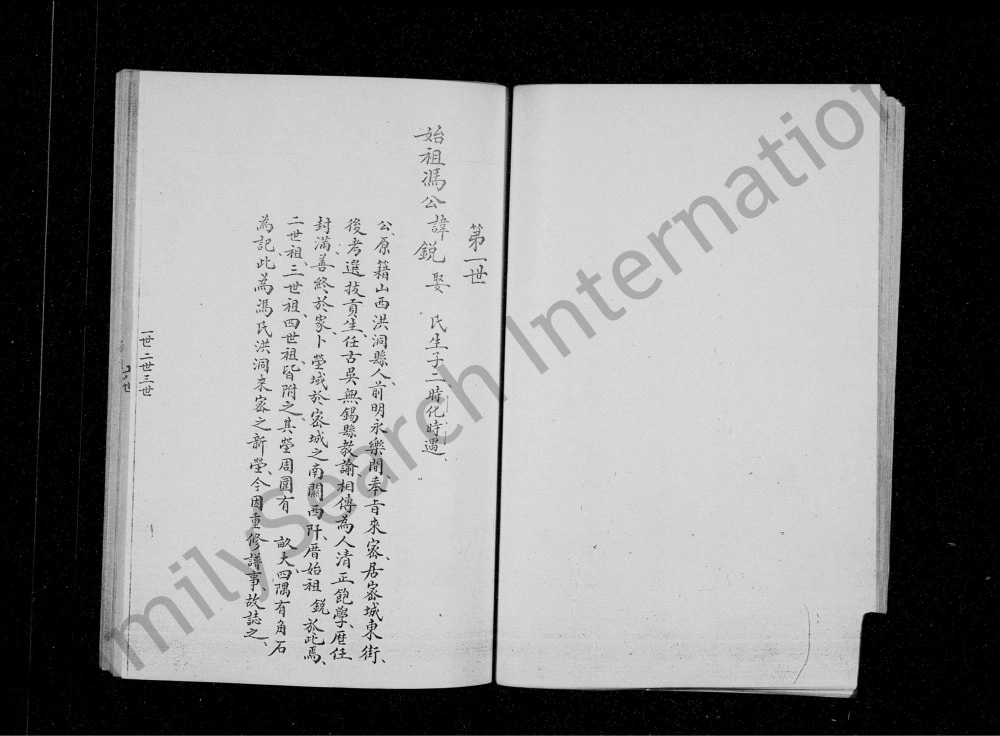 第一世
始祖馮公諱銳 娶 氏生子二時化時遇、
公、原籍山西洪洞縣人、前明永樂間、奉旨來密、居密城東街、
後考選拔貢生、任古吳無錫縣教諭、相傳為人清正飽學、歷任
封滿、善終於家、卜塋域於密城之南關西阡、厝始祖 銳於此焉、
二世祖、三世祖、四世祖、皆附之、其塋周圓有 畝大、四隅有角石
為記、此為馮氏洪洞來密之新塋、今因重修譜事、故誌之、
一世二世三世
milySearch Internation